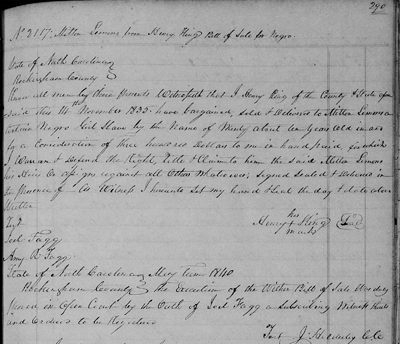 290
No 2117: Milton Lemons from Henry King Bill of Sale for Negro
State of North Carolina
Rockingham County
Know all men by these presents Witnesseth that I Henry King of the County & State afore
said this 14th November 1835 have bargained, sold & delivered to Milton Lemons a
certain Negro Girl Slave by the Name of about ten years old in
by a consideration of three hundred Dollars to me in hand paid, for which
I Warrant & Defend the Right, Title & Claim to him the said Milton Lemons
his Heirs & assigns against all Others Whatsoever; Signed Sealed & delivered in
the presence of As Witness I hereunto Set my hand & Seal the day & date above
Written
Test
Joel Fagg
Amy Fagg
Henry his + mark King Seal
State of North Carolina May Term 1840
Rockingham County the Execution of the Within Bill of Sale was duly
proven in Open Court by the Oath of Joel Fagg a subscribing Witness thereto
and Ordered to be Registered
Test